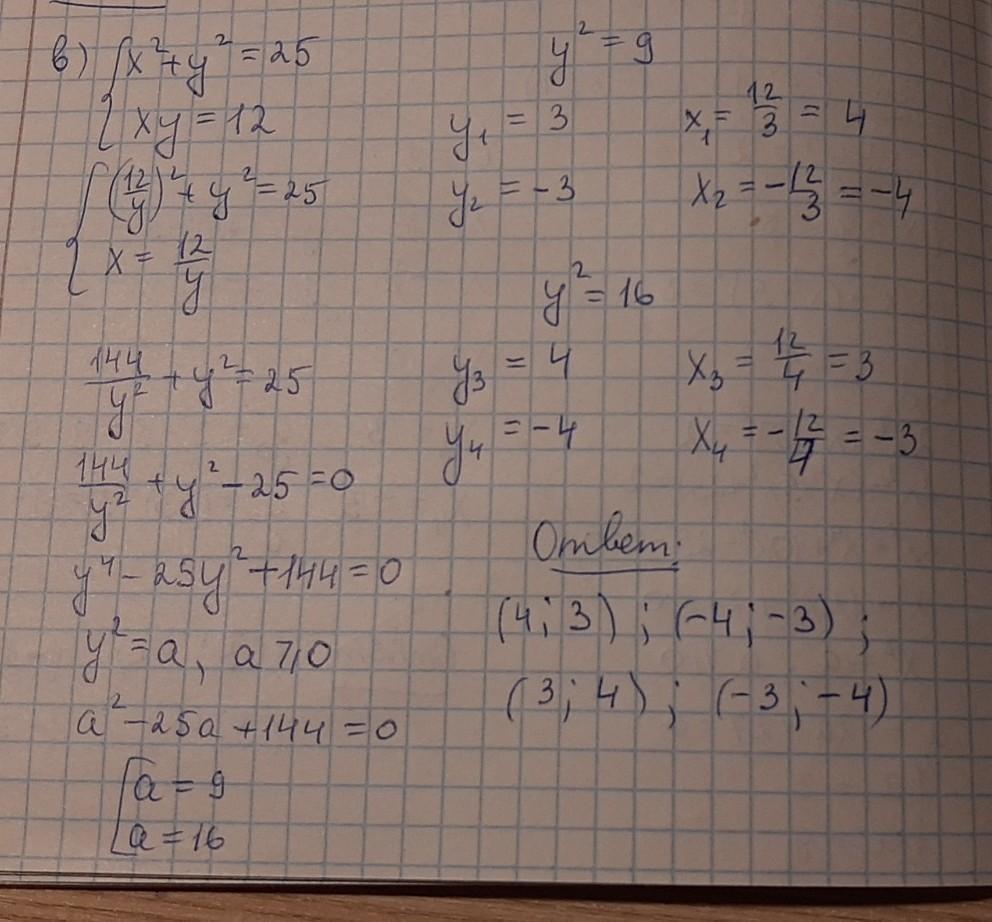 в) { x² + y² = 25
xy = 12
{ (12/y)² + y² = 25
x = 12/y
144/y² + y² = 25
144/y² + y² - 25 = 0
y⁴ - 25y² + 144 = 0
y² = a, a ⩾ 0
a² - 25a + 144 = 0
[ a = 9
a = 16
y² = 9
y₁ = 3 x₁ = 12/3 = 4
y₂ = -3 x₂ = -12/3 = -4
y² = 16
y₃ = 4 x₃ = 12/4 = 3
y₄ = -4 x₄ = -12/4 = -3
Ответ:
(4; 3) ; (-4; -3) ;
(3; 4) ; (-3; -4)